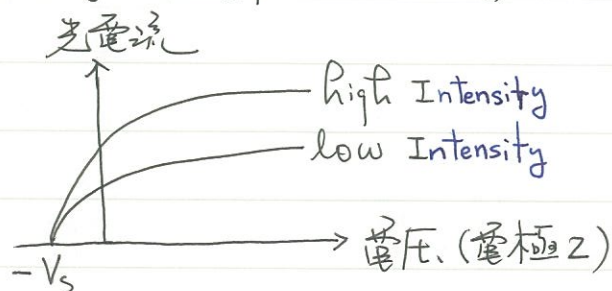 光電流
high Intensity
low Intensity
電圧、(電極2)
-Vs